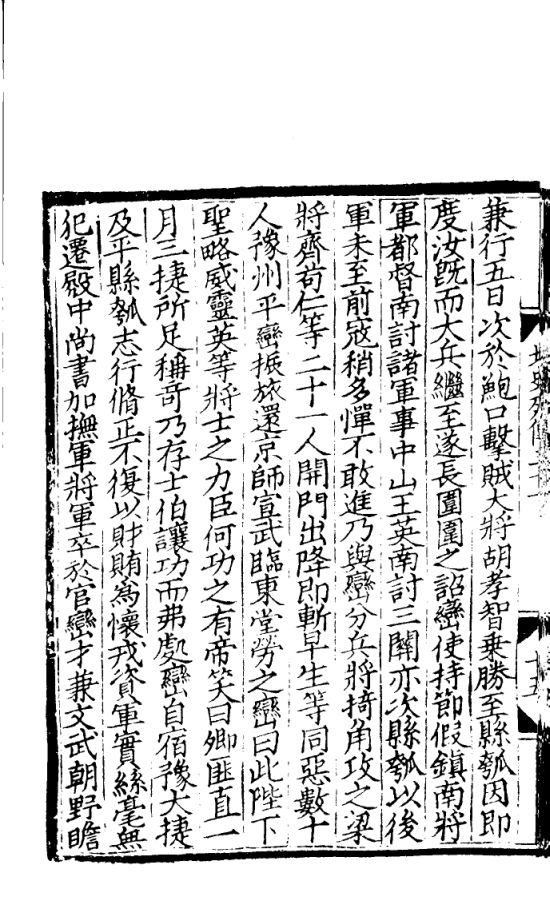 兼行五日次於鮑口擊賊大將胡孝智乗勝至縣瓠因即
度汝旣而大兵繼至遂長圍圍之詔巒使持節假鎮南將
軍都督南討諸軍事中山王英南討三關亦次縣瓠以後
軍未至前寇稍多憚不敢進乃與巒分兵將掎角攻之梁
將齊苟仁等二十一人開門出降即斬早生等同惡數十
人豫州平巒振旅還京師宣武臨東堂勞之巒曰此陛下
聖略威靈英等將士之力臣何功之有帝笑曰卿匪直一
月三捷所足稱竒乃存士伯讓功而弗處巒自宿豫大捷
及平縣瓠志行脩正不復以財賄爲懷戎資軍實絲毫無
犯遷殿中尚書加撫軍將軍卒於官巒才兼文武朝野瞻